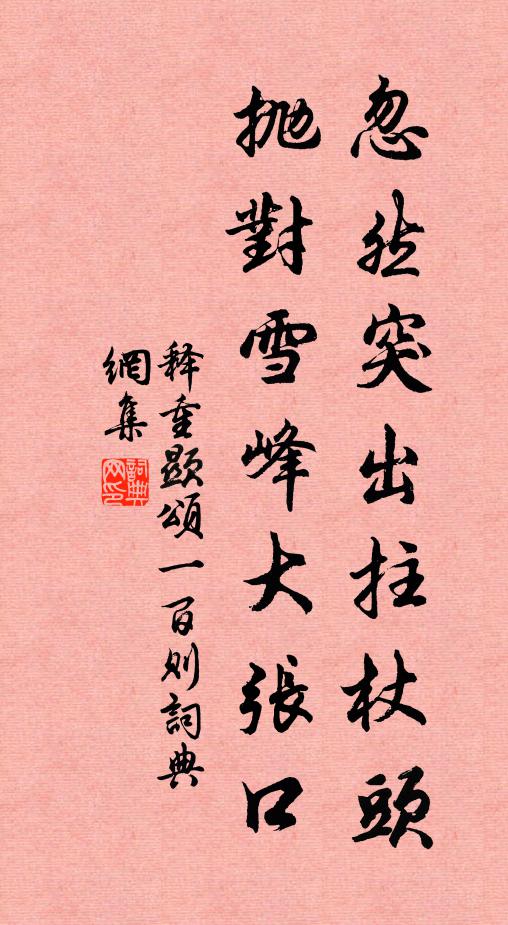 忽然突出拄杖頭
拋對雪峰大張口
釋重顯頌一百則詞典
網集
詞典網印